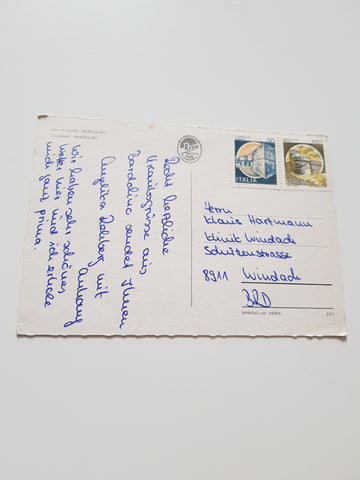 Lago di Garda - BARDOLINO
Gardasee - BARDOLINO
Recht herzliche
Urlaubsgrüsse aus
Bardolino sendet Ihnen
Angelika mit
Anhang
Wir haben sehr schönes
Wetter hier und ich erhole
mich ganz prima.
ITALIA
ITALIA
Herrn
Klaus Hartmann
Klinik Windach
Schützenstrasse
8911 Windach
BRD